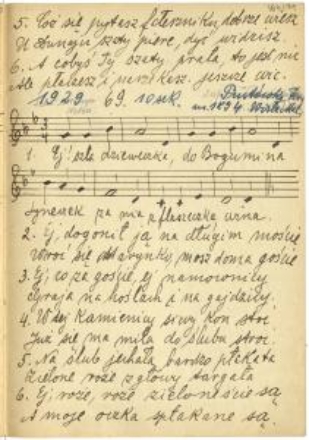 5. Coż się pytasz żołerzniku, dobrze wiesz
U Dunaju szaty piere, dyć widzisz.
6. A cobyś Ty szaty prała, to jest nic
Ale płaczesz i narzekasz jeszcze wic.
1929 69. 10 sek.
ur. 1894
1. Ej! szła dzieweczka, do Bogumina
Syneczek za nią z flaszeczką wina.
2. Ej, dogonił ją na długim moście
Wróć się Marynko, masz doma goście
3. Ej, co za goście, ej namownicy
Grają na hoślach i na gajdzicy.
4. W tej kamienicy siwy koń stoi
Już się ma miła do ślubu stroi.
5. Na ślub jechała bardzo płakała
Zielone róże z głowy targała
6. Ej, róże, róże zieloneście są
A moje oczka spłakane są.